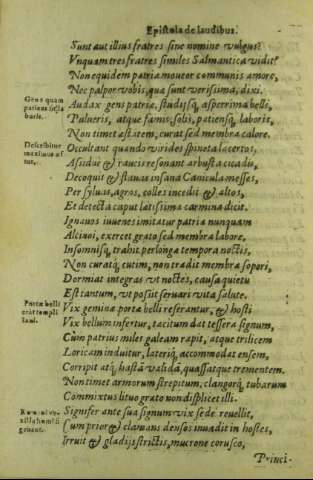 Epistola de laudibus.
Sunt aut illius fratres sine nomine vulgus?
Vnquam tres fratres similes Salmantica vidit?
Non equidem patriæ moueor communis amore,
Nec palpor vobis, quæ sunt verissima, dixi.
Audax gens patriæ, studijsq́, asperrima belli,
Pulueris, atque famis, solis, patiensq́, laboris,
Non timet æstatem, curat sed membra calore.
Occultant quando virides spineta lacertos,
Asiduè & raucis resonant arbusta cicadis,
Decoquit & flauas insana Canicula messes,
Per syluas, agros, colles incedit & altos,
Et detecta caput letissima carmina dicit.
Ignauos iuuenes imitatur patria nunquam
Alcinoi, exercet grato sed membra labore,
Insomnisq́, trahit perlonga tempora noctis,
Non curatq́, cutim, non tradit membra sopori,
Dormiat integras vt noctes, causa quietu
Est tantum, vt possit seruari vita salute.
Vix gemina portæ belli referantur, & hosti
Vix bellum infertur, tacitum dat tessera signum,
Cùm patrius miles galeam rapit, atque trilicem
Loricam induitur, lateriq́, accommodat ensem,
Corripit atq́, hastā validā, quassatque trementem.
Non timet armorum strepitum, clangorq́, tubarum
Commixtus lituo grato non displicet illi.
Signifer ante sua signum vix sede reuellit,
Cum prior & clauans densos inuadit in hostes,
Irruit & gladijs strictis, mucrone corusco,
Princi-
Gens quam
patiens sit la
boris.
Describitur
maximus æs
tus.
Portæ belli
erāt templi
Iani.